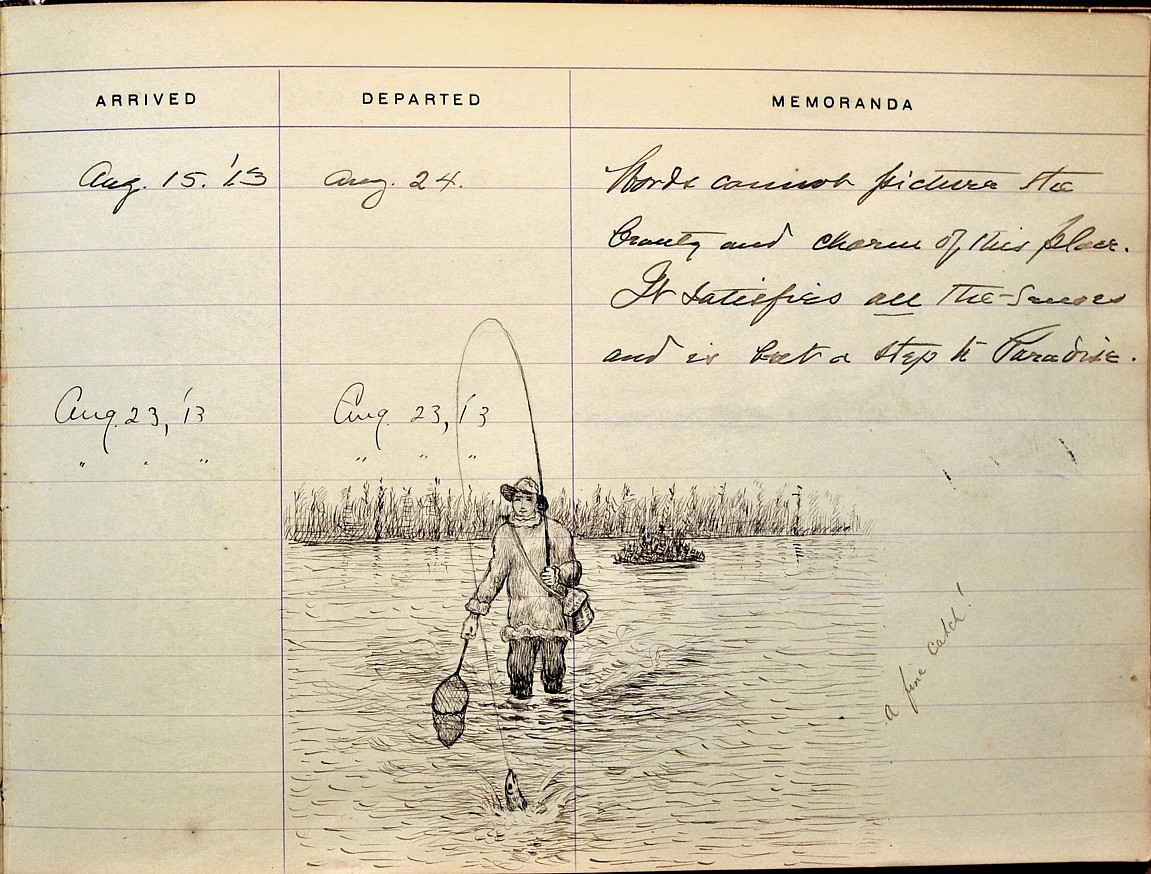 ARRIVED DEPARTED MEMORANDA
Aug. 15. '13 Aug. 24. Words cannot picture the
beauty and charm of this place.
It satisfies all the senses
and is but a step to Paradise.
Aug. 23, '13 Aug. 23, '13
" " " " " "
a fine catch!